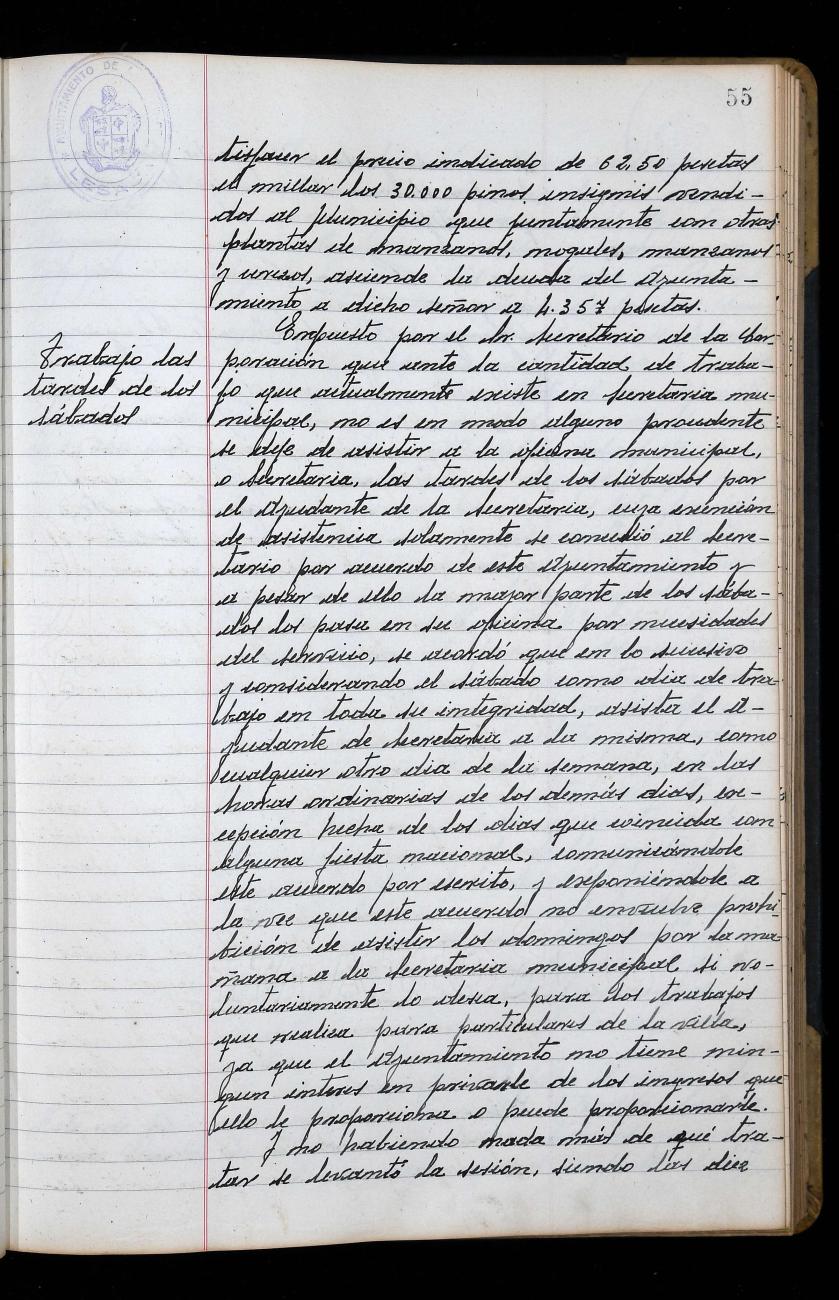 55
AYUNTAMIENTO DE
LESACA
tisfacer el precio indicado de 62,50 pesetas
el millar los 30.000 pinos insignis vendi-
dos al Municipio que juntamente con otras
plantas de manzanos, nogales, manzanos
y cerezos, asciende la deuda del Ayunta-
miento a dicho señor a 4.357 pesetas.
Trabajo las
tardes de los
sábados
Expuesto por el Sr. Secretario de la Cor-
poración que ante la cantidad de traba-
jo que actualmente existe en Secretaria mu-
nicipal, no es en modo alguno procedente
se deje de asistir a la oficina municipal,
o Secretaria, las tardes de los sábados por
el Ayudante de la Secretaria, cuya exención
de asistencia solamente se concedió al Secre-
tario por acuerdo de este Ayuntamiento y
a pesar de ello la mayor parte de los sába-
dos los pasa en su oficina por necesidades
del servicio, se acordó que en lo sucesivo
y considerando el sábado como dia de tra-
bajo en toda su integridad, asista el A-
yudante de Secretaria a la misma, como
cualquier otro dia de la semana, en las
horas ordinarias de los demás dias, ex-
cepción hecha de los dias que coincida con
alguna fiesta nacional, comunicándole
este acuerdo por escrito, y exponiéndole a
la vez que este acuerdo no envuelve prohi-
bición de asistir los domingos por la ma-
ñana a la Secretaria municipal si vo-
luntariamente lo desea, para los trabajos
que realiza para particulares de la villa,
ya que el Ayuntamiento no tiene nin-
gun interes en privarle de los ingresos que
ello le proporciona o puede proporcionarle.
Y no habiendo nada más de qué tra-
tar se levantó la sesión, siendo las diez